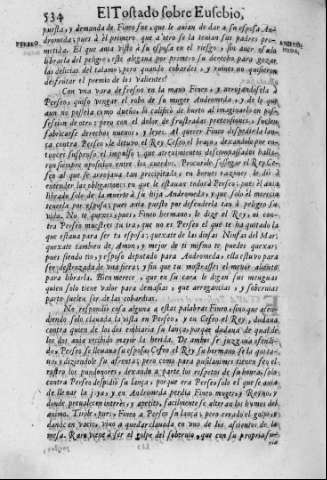 534 El Tostado sobre Eusebio,
puesta, y demanda de Fineo fue, que le auian de dar a su esposa An-
dromeda, pues a èl primero que a otro se la tenian sus padres pro-
metida. El que auia visto à su esposa en el riesgo, sin
librarla del peligro, este alegaua por primero su derecho para gozar
las delicias del talamo, pero quando cobardes, y ruines no quisieron
desfrutar el premio de los valientes?
Con una vara de fresno en la mano Fineo, y arrojandosela à
Perseo, quiso vengar el robo de su muger Andromeda, y de lo que
aun no posseìa como dueño, lo calificò de hurto al imaginarlo en pos-
session de otro; pero con el dolor de frustradas pretensiones, suelen
fabricarse derechos nuevos, y leyes. Al querer Fineo despedir la lan-
ça contra Perseo, le detuvo el Rey Cefeo el braço, dexandole por en-
tonces suspenso el impulso,
que atrevimientos descompassados
aun se suceden. Procurò sossegar el Rey Ce-
feo al que se arrojaua tan precipitado, en breues razones le diò à
entender las obligaciones en que le estauan todos à Perseo; pues le auia
librado solo de la muerte à su hija Andromeda, y que solo èl merecia
tenerla por esposa; pues auia puesto por defenderla tan à peligro su
vida. No te quexes, pues, Fineo hermano, le dize el Rey, ni con-
tra Perseo muestres tu ira, pues no es Perseo el que te ha quitado la
que estaua para ser tu esposa; quexate de las diosas Ninfas del Mar;
quexate tambien de Amon, y mejor de ti mismo te puedes quexar;
pues siendo tio, y esposo deputado para Andromeda, ella estuvo para
ser despedazada de una fiera, y sin que tu mostrasses el menor aliento
para librarla. Bien merece, que en su cara le digan sus menguas
quien solo tiene valor para demasias, que arrogancias, y sobervias
parte suelen ser de las cobardias.
No respondiò cosa alguna à estas palabras Fineo, sino que aten-
diendo solo clauada la vista en Perseo, y en Cefeo el Rey, dudaua
contra quien de los dos embiaria su lança, porque dudaua de qual de
los dos auia recibido mayor la herida. De ambos se juzgaua ofendi-
do, Perseo se lleuaua su esposa; Cefeo el Rey su hermano se la quita-
ua, y diziendole su afrenta; pero como para pusilanimes tienen seg
rostro los pundonores, dexando à parte los respetos de su honra, solo
contra Perseo despidiò su lança, porque era Perseo solo el que se auia
de lleuar la joya, y en Andromeda perdia Fineo muger, y Reyno, y
donde preualecen interès, y apetito, facilmente se alteran los humos del
animo. Tirole, pues, Fineo à Perseo su lança, pero errado el golpe,
dando en vacio, vino à quedar clauada en uno de los assientos de la
mesa. Rara vez viene à ser el golpe del sobervio, que con su propia